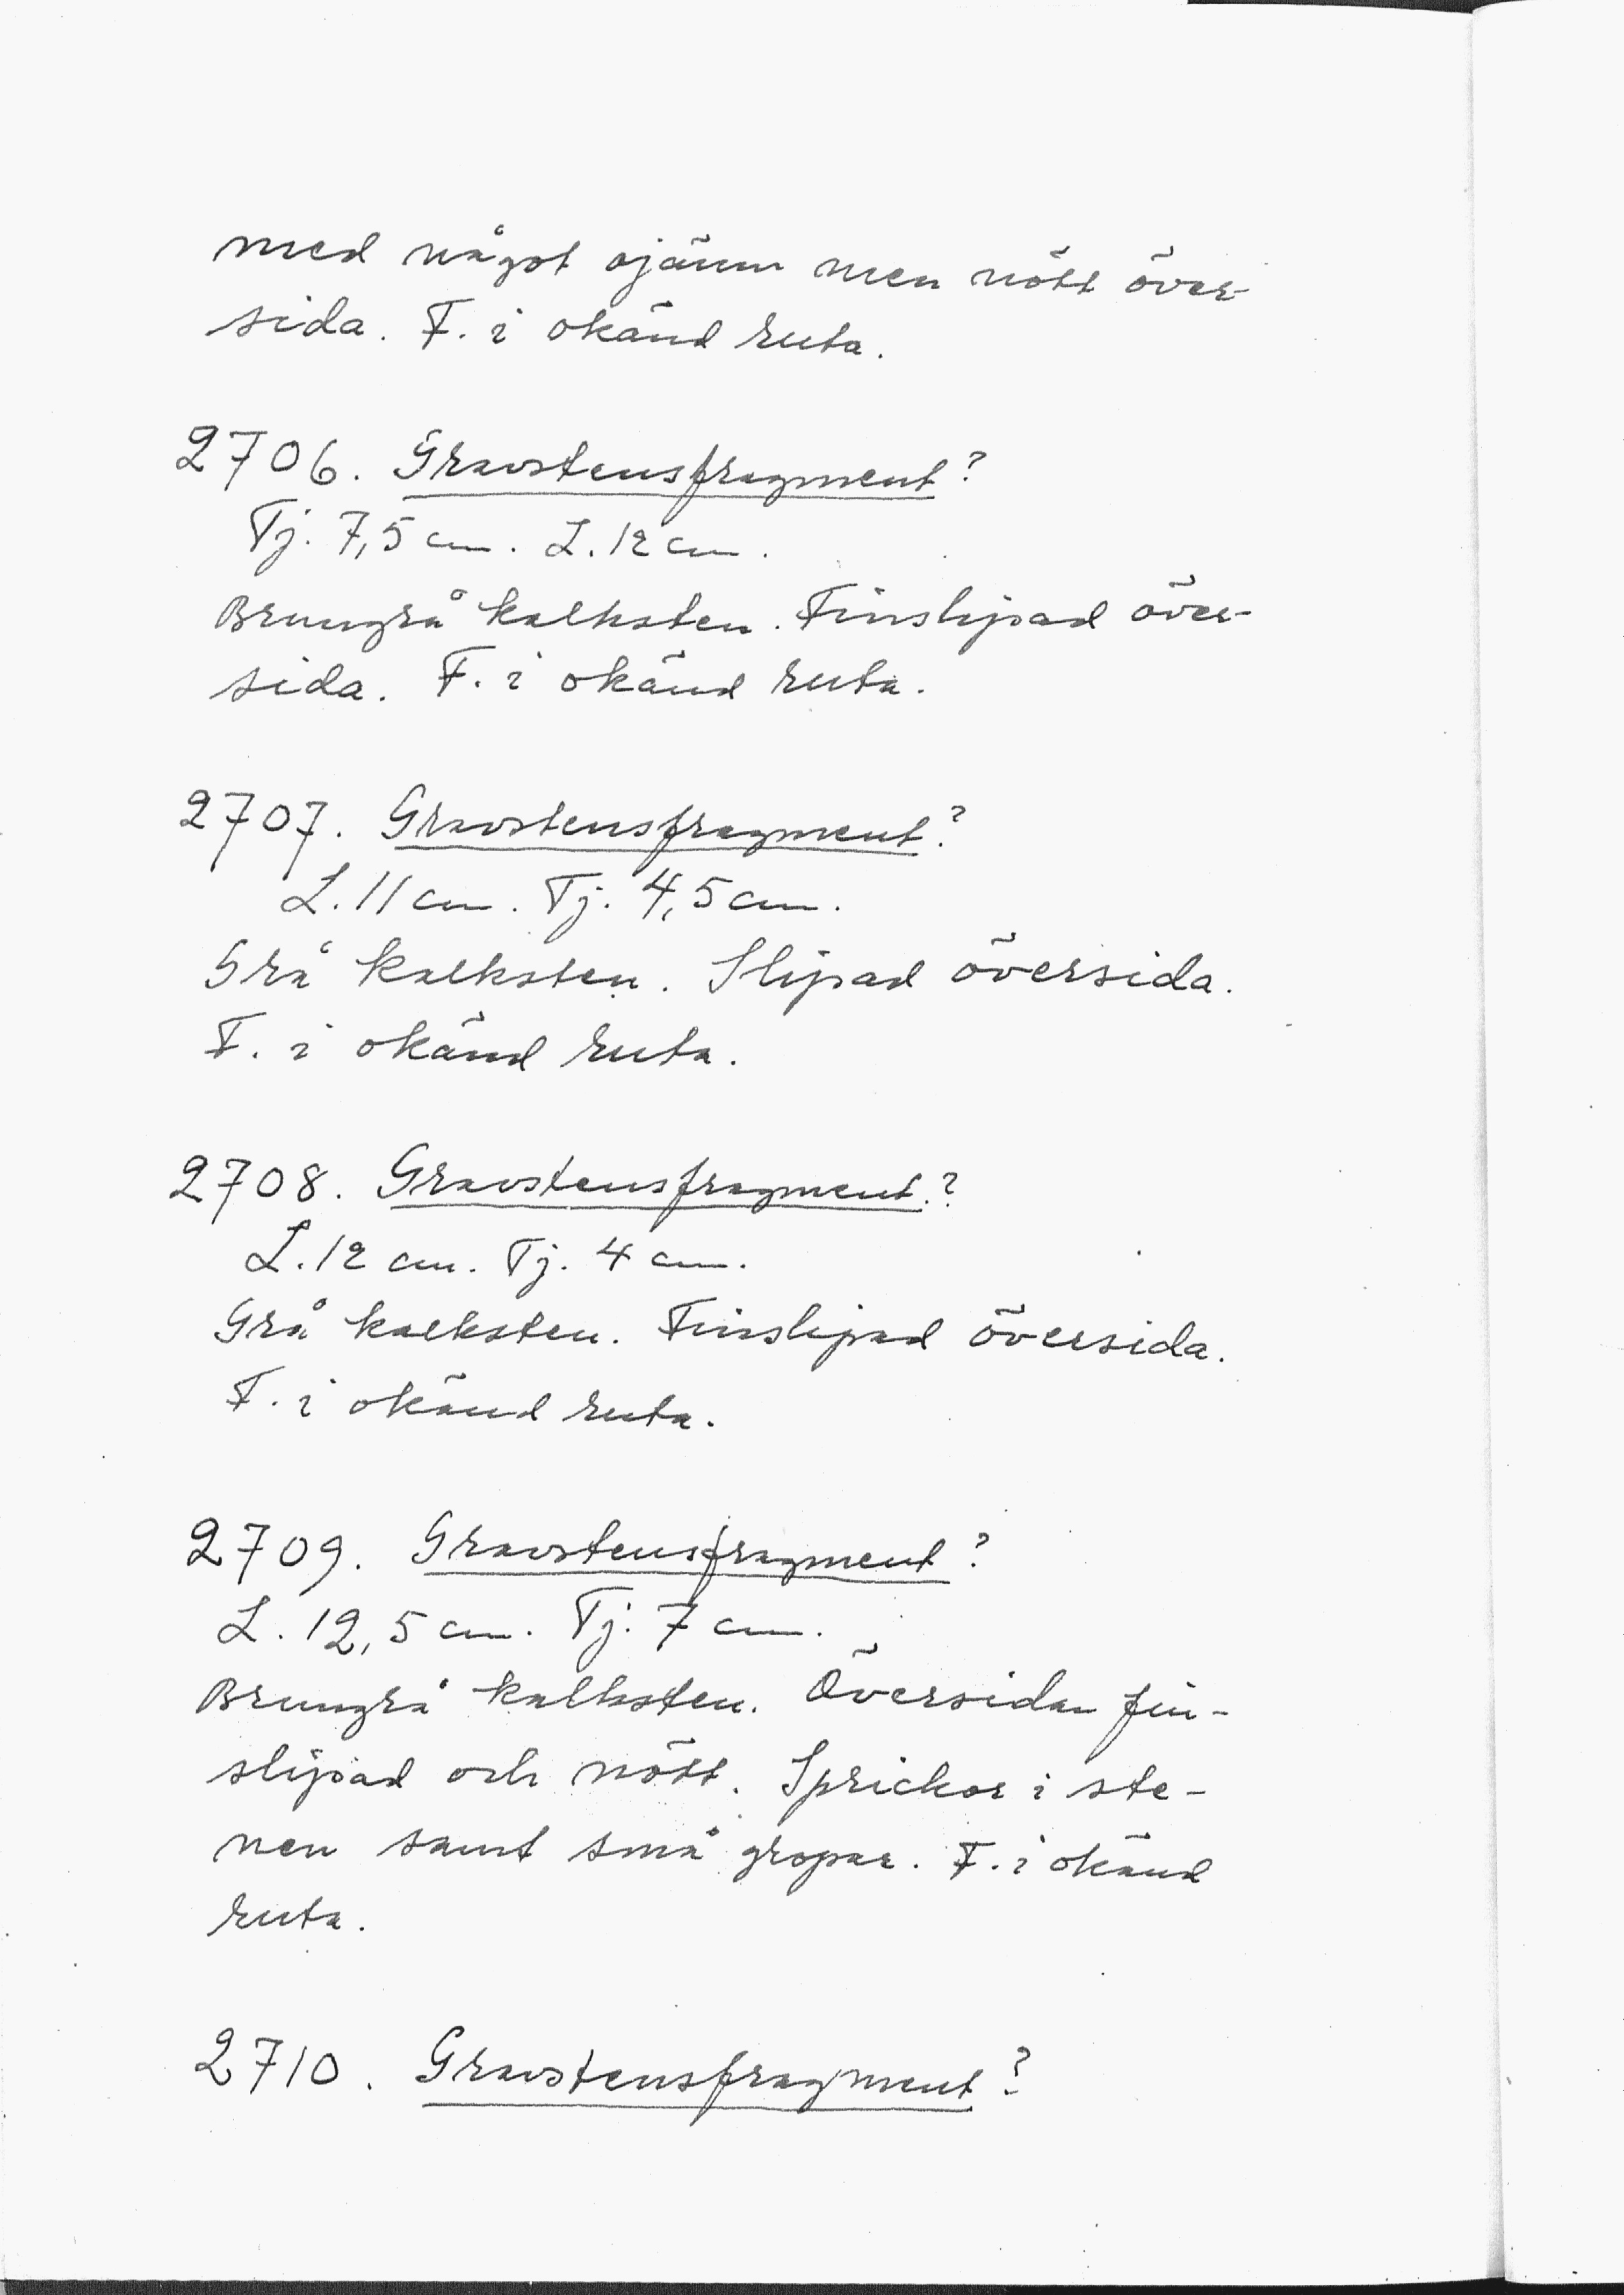 med något ojämn men nött över-
sida. F. i okänd ruta.
2706. Gravstensfragment?
Tj. 7,5 cm. L. 12 cm.
Brungrå kalksten. Finslipad över-
sida. F. i okänd ruta.
2707. Gravstensfragment?
L. 11 cm. Tj. 4,5 cm.
Grå kalksten. Slipad översida.
F. i okänd ruta.
2708. Gravstensfragment.?
L. 12 cm. Tj. 4 cm.
Grå kalksten. Finslipad översida.
F. i okänd ruta.
2709. Gravstensfragment?
L. 12,5 cm. Tj. 7 cm.
Brungrå kalksten. Översidan fin-
slipad och nött. Sprickor i ste-
nen samt små gropar. F. i okänd
ruta.
2710. Gravstensfragment?